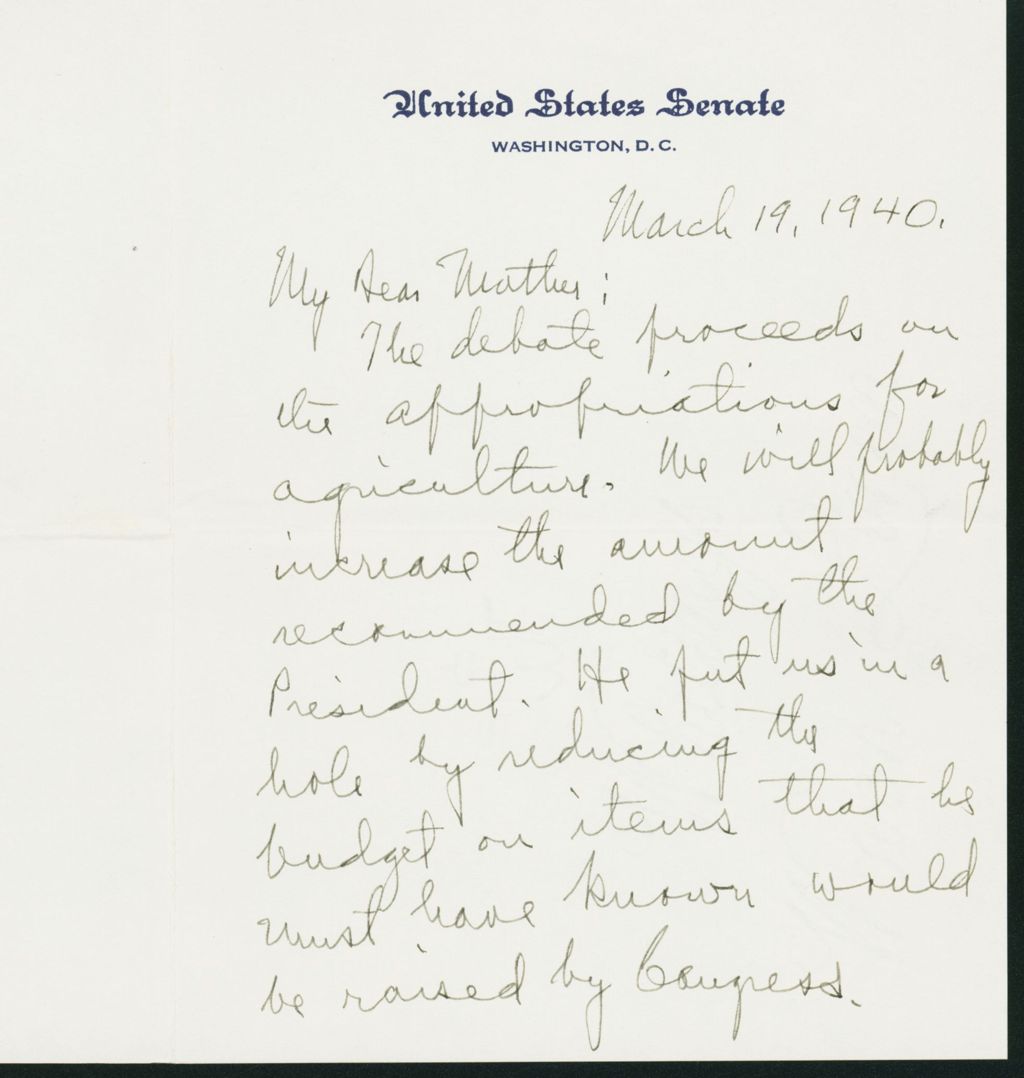 United States Senate
WASHINGTON, D.C.
March 19, 1940.
My Dear Mother:
The debate proceeds on
the appropriations for
agriculture. We will probably
increase the amount
recommended by the
President. He put us in a
hole by reducing the
budget on items that he
must have known would
be raised by Congress.